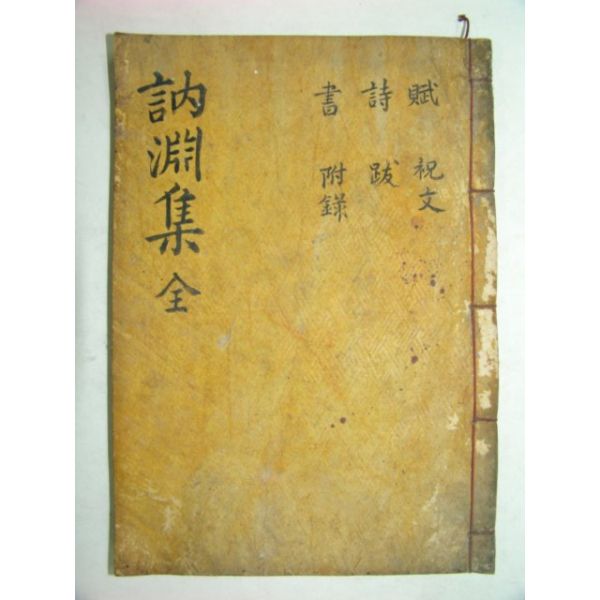 賦 祝文
詩 跋
書 附錄
訥淵集 全